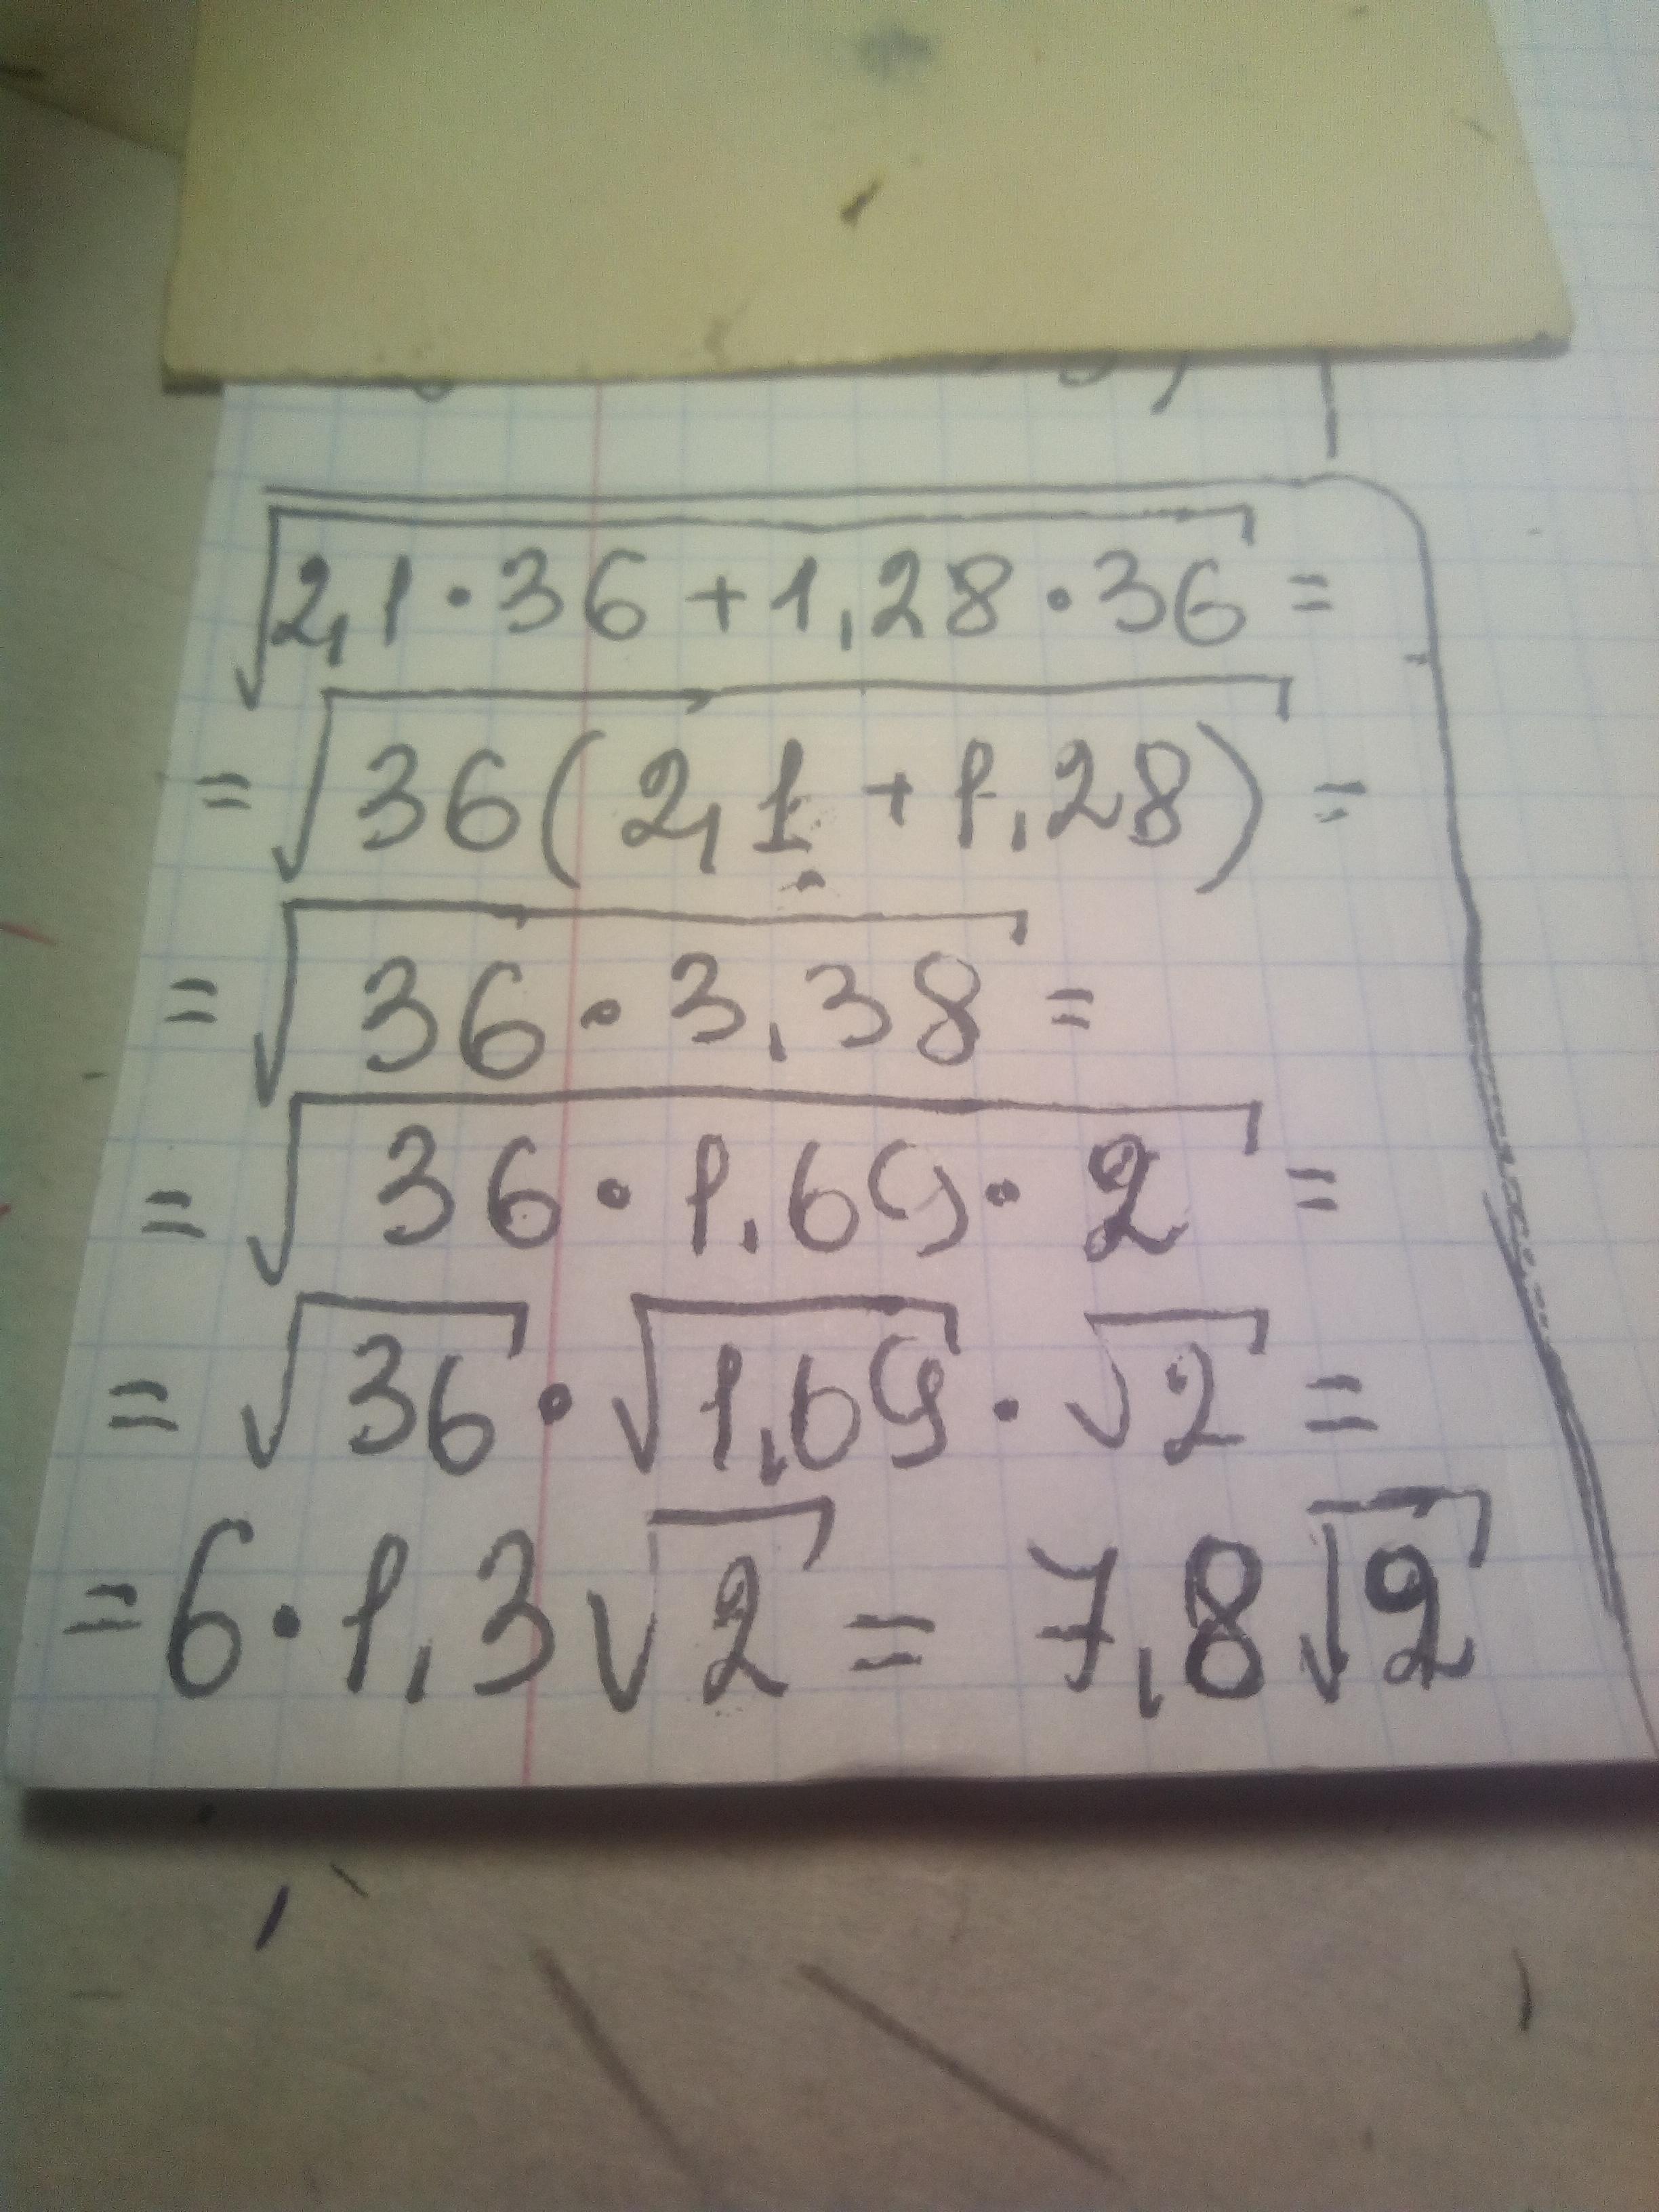 √2,1·36+1,28·36 =
= √36(2,1+1,28) =
= √36·3,38 =
= √36·1,69·2 =
= √36 · √1,69 · √2 =
= 6·1,3√2 = 7,8√2